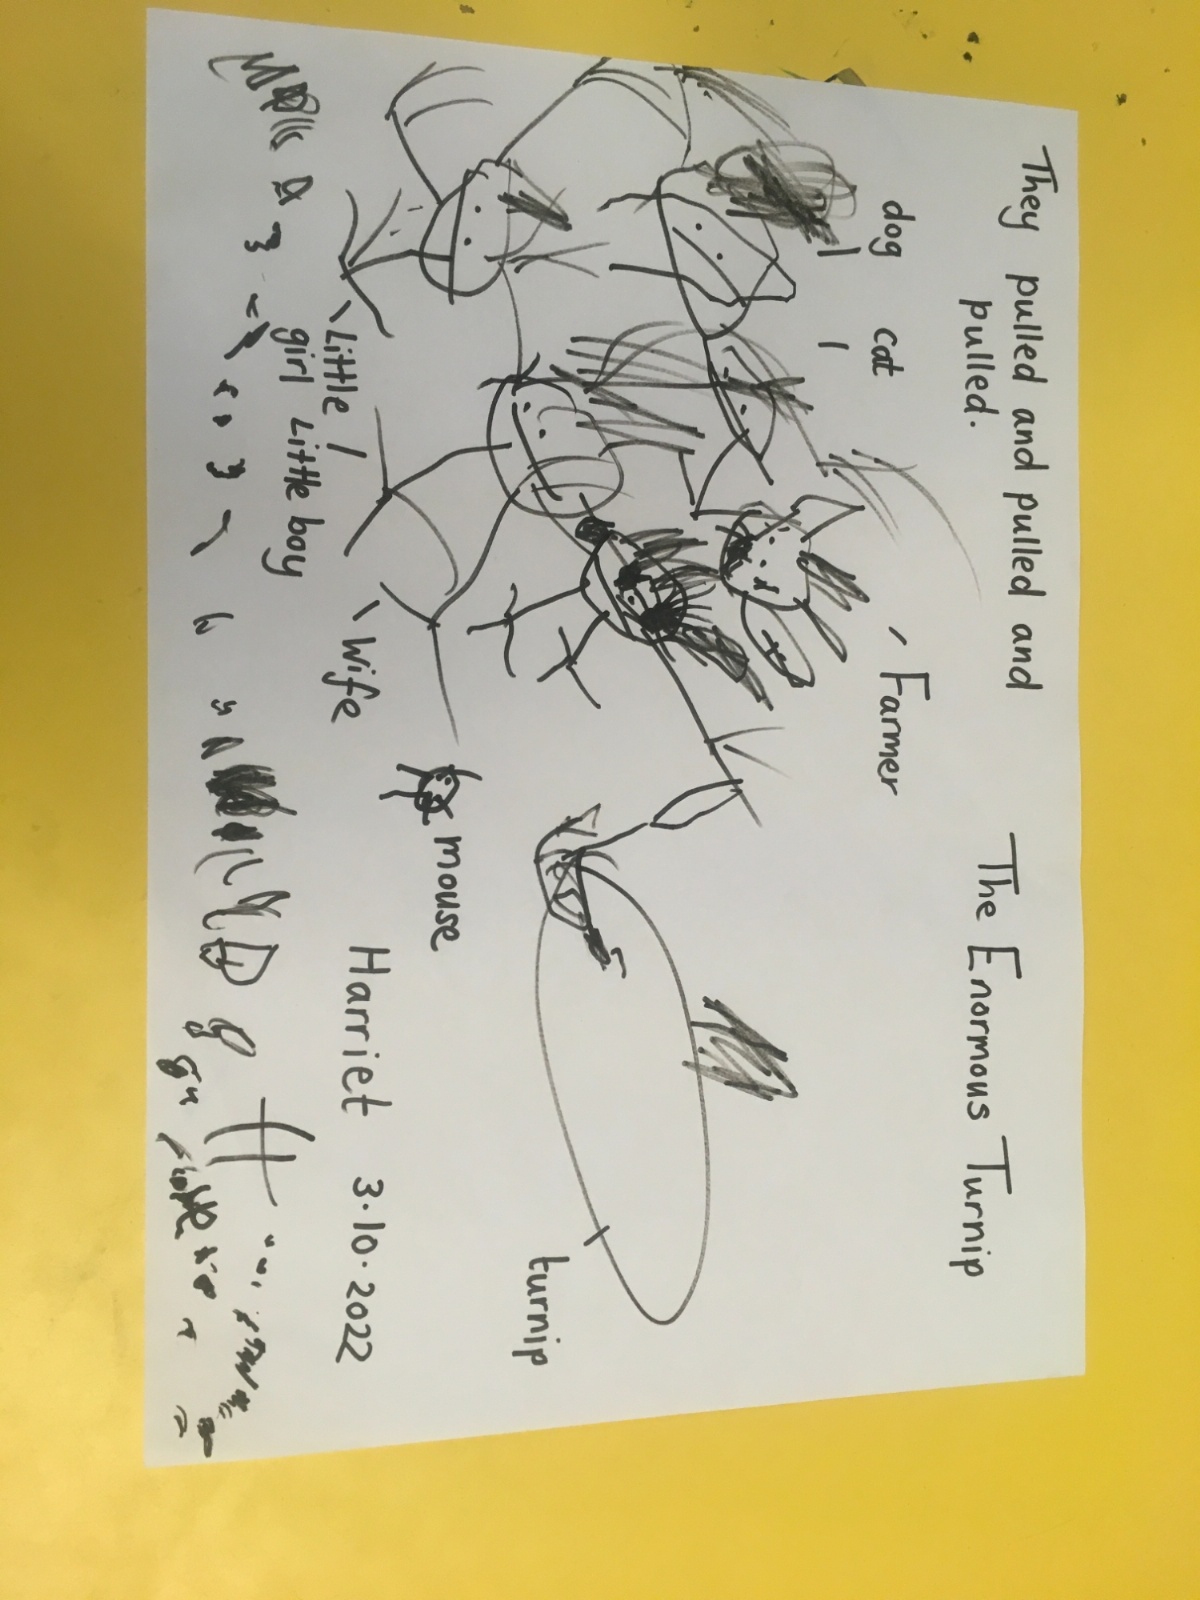 They pulled and pulled and
pulled.
The Enormous Turnip
dog
cat
Farmer
Little
girl
Little boy
Wife
mouse
turnip
Harriet 3.10.2022